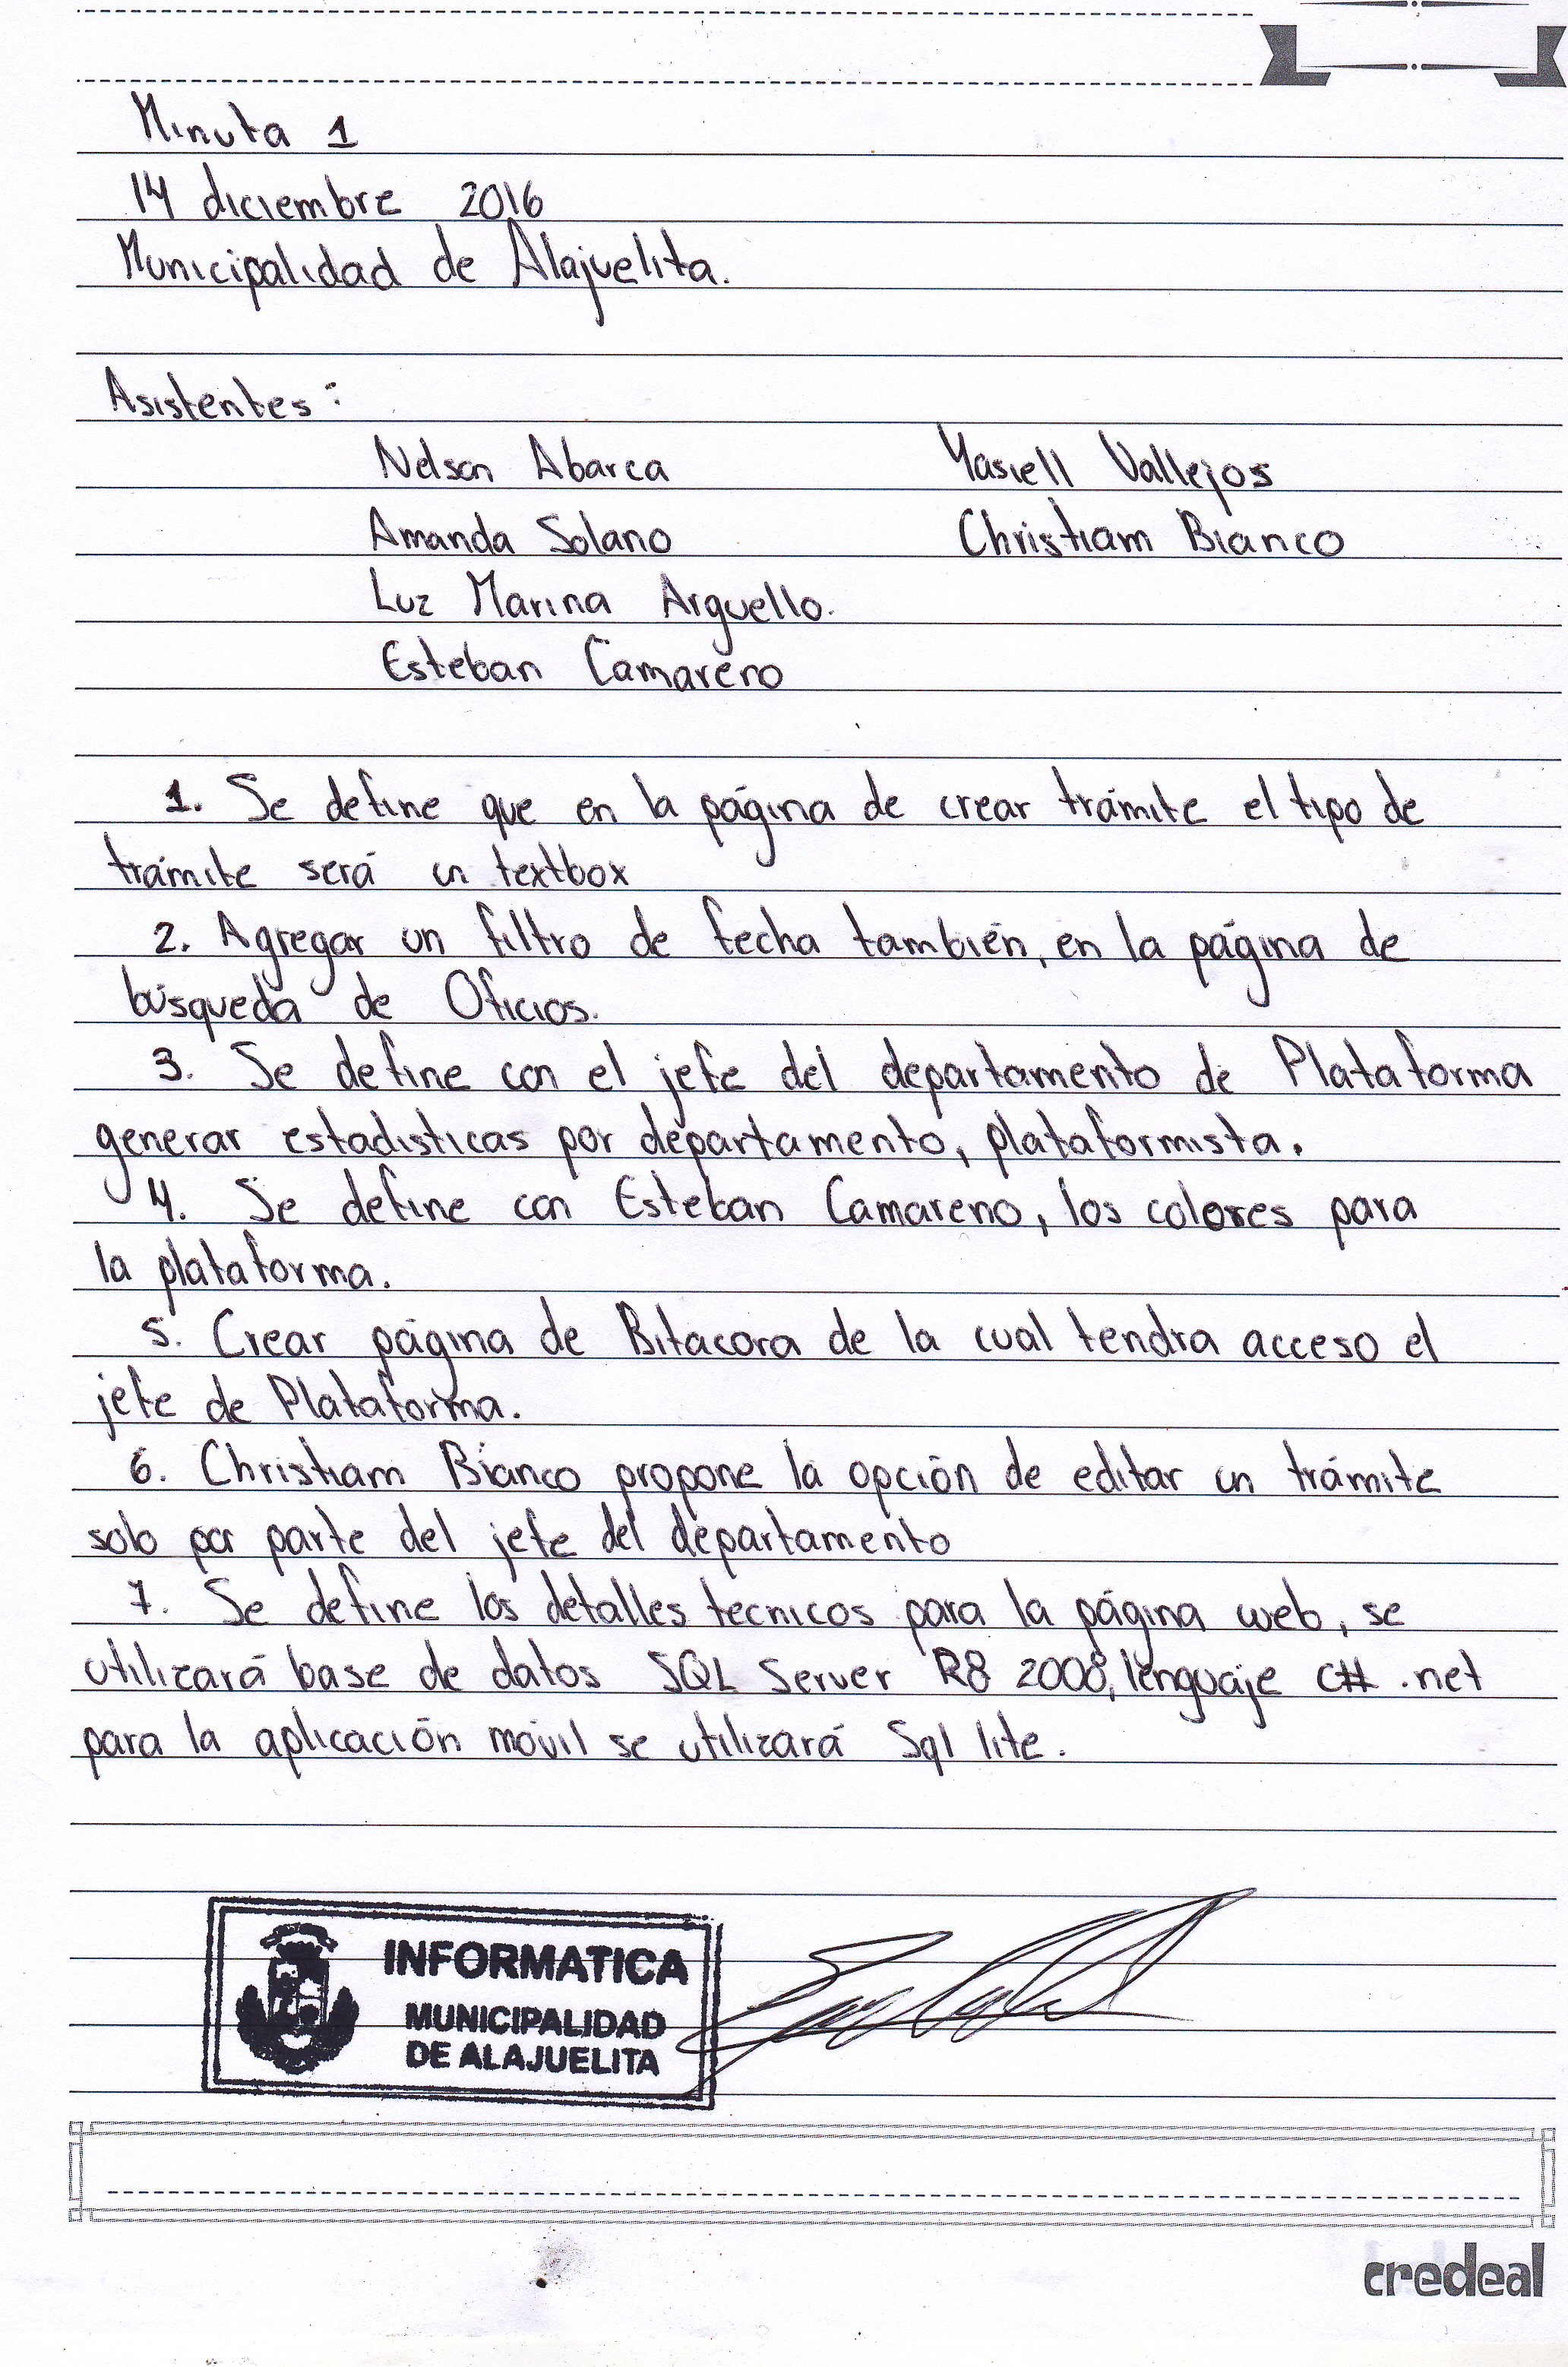 Minuta 1
14 diciembre 2016
Municipalidad de Alajuelita.
Asistentes:
Nelson Abarca Yasiell Vallejos
Amanda Solano Christiam Bianco
Luz Marina Arguello.
Esteban Camareno
1. Se define que en la página de crear trámite el tipo de
trámite será un textbox
2. Agregar un filtro de fecha también, en la página de
búsqueda de Oficios.
3. Se define con el jefe del departamento de Plataforma
generar estadisticas por departamento, plataformista.
4. Se define con Esteban Camareno, los colores para
la plataforma.
5. Crear página de Bitacora de la cual tendra acceso el
jefe de Plataforma.
6. Christiam Bianco propone la opción de editar un trámite
solo por parte del jefe del departamento
7. Se define los detalles tecnicos para la página web, se
utilizará base de datos SQL Server R8 2008, lenguaje C# .net
para la aplicación móvil se utilizará Sql lite.
INFORMATICA
MUNICIPALIDAD
DE ALAJUELITA
credeal